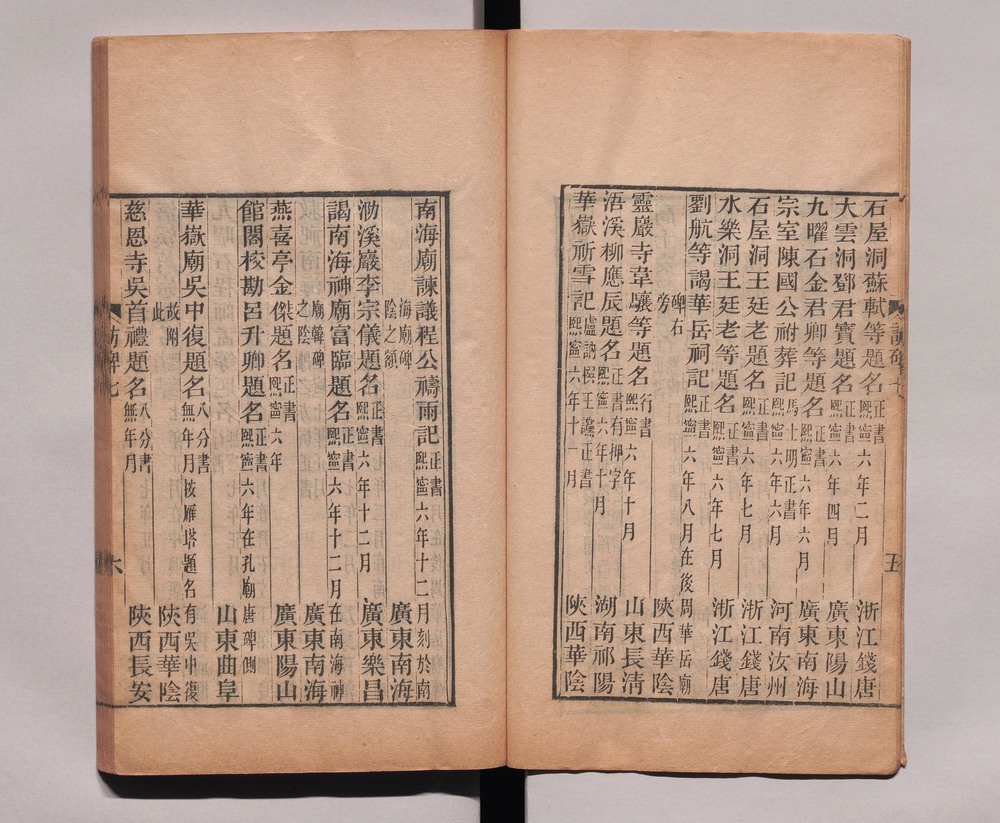 石屋洞蘇軾等題名正書熙寧六年二月 浙江錢唐
大雲洞鄧君寶題名正書熙寧六年四月 廣東陽山
九曜石金君卿等題名正書熙寧六年六月 廣東南海
宗室陳國公祔葬記馬士明正書熙寧六年六月 河南汝州
石屋洞王廷老題名正書熙寧六年七月 浙江錢唐
水樂洞王廷老等題名正書熙寧六年七月 浙江錢唐
劉航等謁華岳祠記正書熙寧六年八月在後周華岳廟
碑右旁 陝西華陰
靈巖寺韋驤等題名行書熙寧六年十月 山東長清
浯溪柳應辰題名正書有押字熙寧六年十月 湖南祁陽
華嶽祈雪記盧訥撰王謹正書熙寧六年十一月 陝西華陰
訪碑七
五
南海廟諫議程公禱雨記正書熙寧六年十二月刻於南
海廟碑陰之額 廣東南海
泐溪巖李宗儀題名正書熙寧六年十二月 廣東樂昌
謁南海神廟富臨題名正書熙寧六年十二月在南海神
廟韓碑之陰 廣東南海
燕喜亭金傑題名正書熙寧六年 廣東陽山
館閣校勘呂升卿題名正書熙寧六年在孔廟唐碑側
山東曲阜
華嶽廟吳中復題名八分書無年月按雁塔題名有吳中復
故附此 陝西華陰
慈恩寺吳首禮題名八分書無年月 陝西長安
訪碑七
六